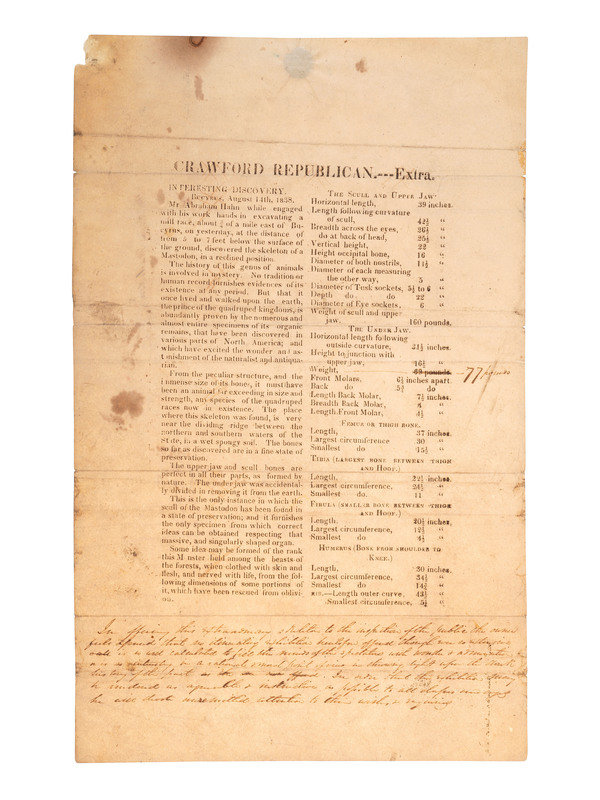 CRAWFORD REPUBLICAN.---Extra.
INTERESTING DISCOVERY.
Bucyrus, August 14th, 1838.
Mr. Abraham Hahn while engaged
with his work hands in excavating a
mill race, about ¾ of a mile east of Bu-
cyrus, on yesterday, at the distance of
from 5 to 7 feet below the surface of
the ground, discovered the skeleton of a
Mastodon, in a reclined position.
The history of this genus of animals
is involved in mystery. No tradition or
human record furnishes evidences of its
existence at any period. But that it
once lived and walked upon the earth,
the prince of the quadruped kingdoms, is
abundantly proven by the numerous and
almost entire specimens of its organic
remains, that have been discovered in
various parts of North America; and
which have excited the wonder and as-
tonishment of the naturalist and antiqua-
rian.
From the peculiar structure, and the
immense size of its bones, it must have
been an animal far exceeding in size and
strength, any species of the quadruped
races now in existence. The place
where this skeleton was found, is very
near the dividing ridge between the
northern and southern waters of the
State, in a wet spongy soil. The bones
so far as discovered are in a fine state of
preservation.
The upper jaw and scull bones are
perfect in all their parts, as formed by
nature. The under jaw was accidental-
ly divided in removing it from the earth.
This is the only instance in which the
scull of the Mastodon has been found in
a state of preservation; and it furnishes
the only specimen from which correct
ideas can be obtained respecting that
massive, and singularly shaped organ.
Some idea may be formed of the rank
this Monster held among the beasts of
the forests, when clothed with skin and
flesh, and nerved with life, from the fol-
lowing dimensions of some portions of
it, which have been rescued from oblivi-
on.
The Scull and Upper Jaw.
Horizontal length, 39 inches.
Length following curvature
of scull, 42½ "
Breadth across the eyes, 26½ "
do at back of head, 25½ "
Vertical height, 22 "
Height occipital bone, 16 "
Diameter of both nostrils, 11½ "
Diameter of each measuring
the other way, 5 "
Diameter of Tusk sockets, 5½ to 6 "
Depth do do 22 "
Diameter of Eye sockets, 6 "
Weight of scull and upper
jaw, 160 pounds.
The Under Jaw.
Horizontal length following
outside curvature, 31½ inches.
Height to junction with
upper jaw, 16½ "
Weight, 69 pounds. 77 pounds
Front Molars, 6½ inches apart
Back do 5¾ do
Length Back Molar, 7½ inches.
Breadth Back Molar, 4 "
Length Front Molar, 4½ "
Femur or thigh bone.
Length, 37 inches.
Largest circumference 30 "
Smallest do 15½ "
Tibia (largest bone between thigh
and Hoof.)
Length, 22½ inches.
Largest circumference, 24½ "
Smallest do. 11 "
Fibula (smaller bone between thigh
and Hoof.)
Length, 20½ inches.
Largest circumference, 12½ "
Smallest do 4½ "
Humerus (Bone from shoulder to
Knee.)
Length, 30 inches.
Largest circumference, 34½ "
Smallest do 14½ "
Rib.—Length outer curve, 43½ "
Smallest circumference, 5½ "
In offering this extraordinary skeleton to the inspection of the public, the owner